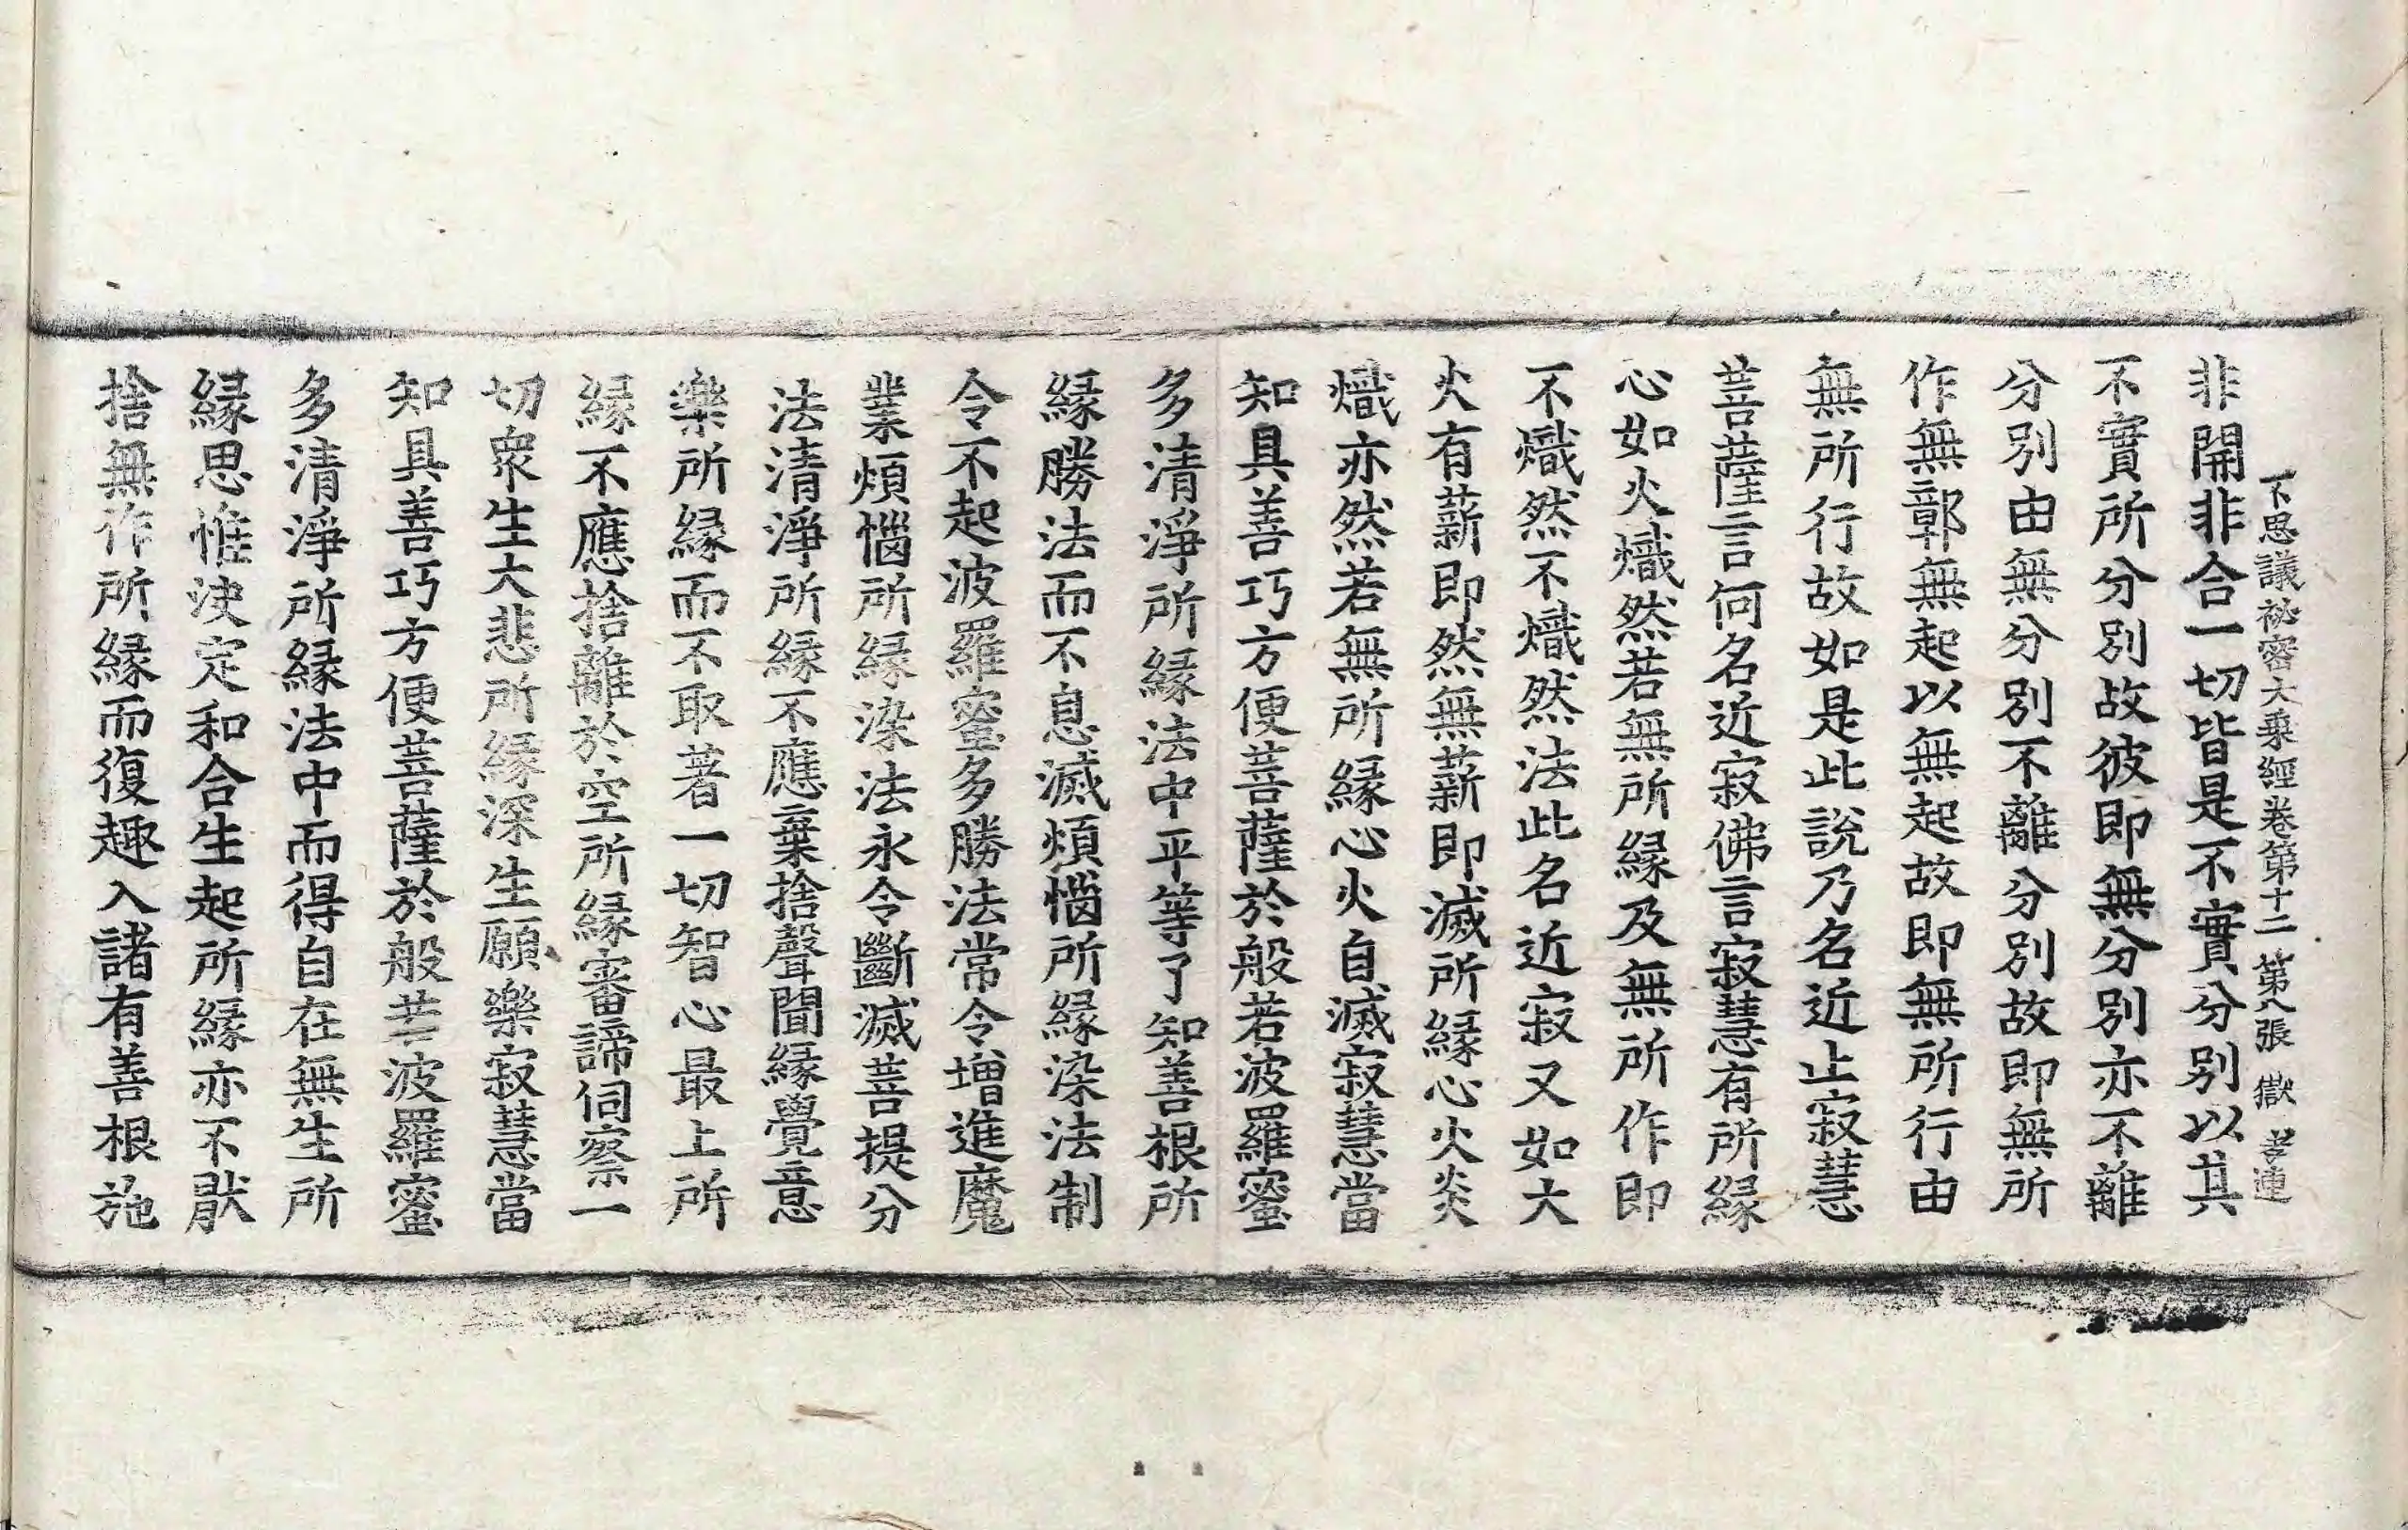 不思議祕密大乘經卷第十二 第八張 獄
非開非合一切皆是不實分別以其
不實所分別故彼即無分別亦不離
分別由無分別不離分別故即無所
作無彰無起以無起故即無所行由
無所行故如是此說乃名近止寂慧
菩薩言何名近寂佛言寂慧有所緣
心如火熾然若無所緣及無所作即
不熾然不熾然法此名近寂又如大
火有薪即然無薪即滅所緣心火炎
熾亦然若無所緣心火自滅寂慧當
知具善巧方便菩薩於般若波羅蜜
多清淨所緣法中平等了知善根所
緣勝法而不息滅煩惱所緣染法制
令不起波羅蜜多勝法常令增進魔
業煩惱所緣染法永令斷滅菩提分
法清淨所緣不應棄捨聲聞緣覺意
樂所緣而不取著一切智心最上所
緣不應捨離於空所緣審諦伺察一
切衆生大悲所緣深生願樂寂慧當
知具善巧方便菩薩於般若波羅蜜
多清淨所緣法中而得自在無生所
緣思惟決定和合生起所緣亦不猒
捨無作所緣而復趣入諸有善根施